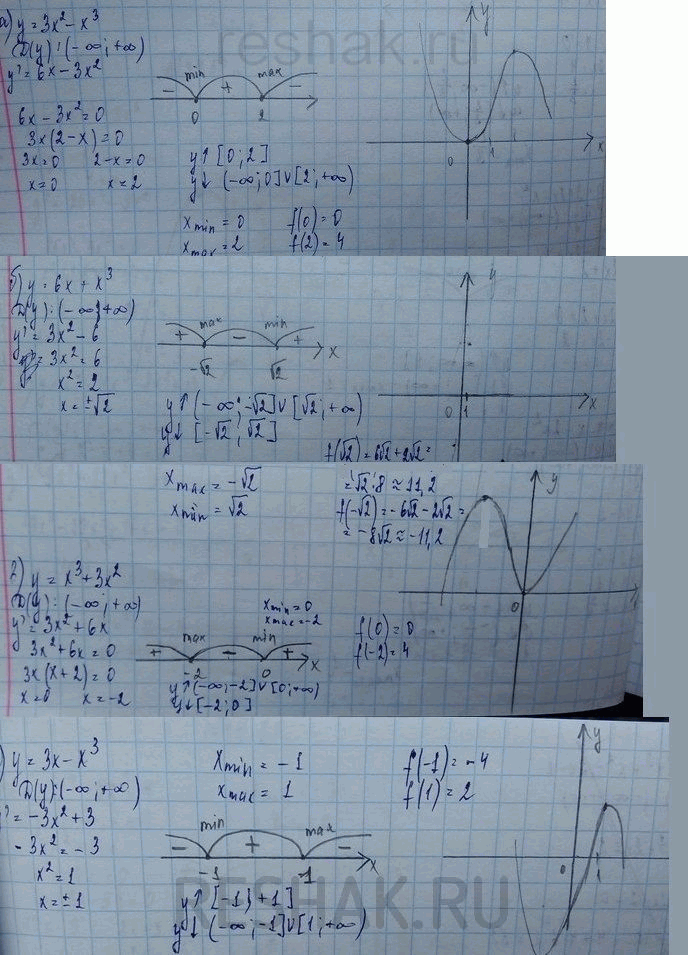 а) y = 3x² - x³
D(y): (-∞; +∞)
y' = 6x - 3x²
6x - 3x² = 0
3x(2 - x) = 0
3x = 0   2 - x = 0
x = 0   x = 2
min max
- + -
0 2
y↑ [0; 2]
y↓ (-∞; 0] ∪ [2; +∞)
x min = 0   f(0) = 0
x max = 2   f(2) = 4
y
0 1 x
reshak.ru
б) y = 6x + x³
D(y): (-∞; +∞)
y' = 3x² - 6
3x² = 6
x² = 2
x = ±√2
max min
+ - + x
-√2 √2
y↑ (-∞; -√2] ∪ [√2; +∞)
y↓ [-√2; √2]
y
0 1 x
f(√2) = 6√2 + 2√2 =
= √2·8 ≈ 11,2
f(-√2) = -6√2 - 2√2 =
= -8√2 ≈ -11,2
x max = -√2
x min = √2
y
0
2) y = x³ + 3x²
D(y): (-∞; +∞)
y' = 3x² + 6x
3x² + 6x = 0
3x(x + 2) = 0
x = 0   x = -2
x min = 0
x max = -2
max min
+ - + x
-2 0
y↑ (-∞; -2] ∪ [0; +∞)
y↓ [-2; 0]
f(0) = 0
f(-2) = 4
) y = 3x - x³
D(y): (-∞; +∞)
y' = -3x² + 3
-3x² = -3
x² = 1
x = ±1
x min = -1   f(-1) = -4
x max = 1   f(1) = 2
min max
- + - x
-1 1
y↑ [-1; +1]
y↓ (-∞; -1] ∪ [1; +∞)
y
0 1
RESHAK.RU